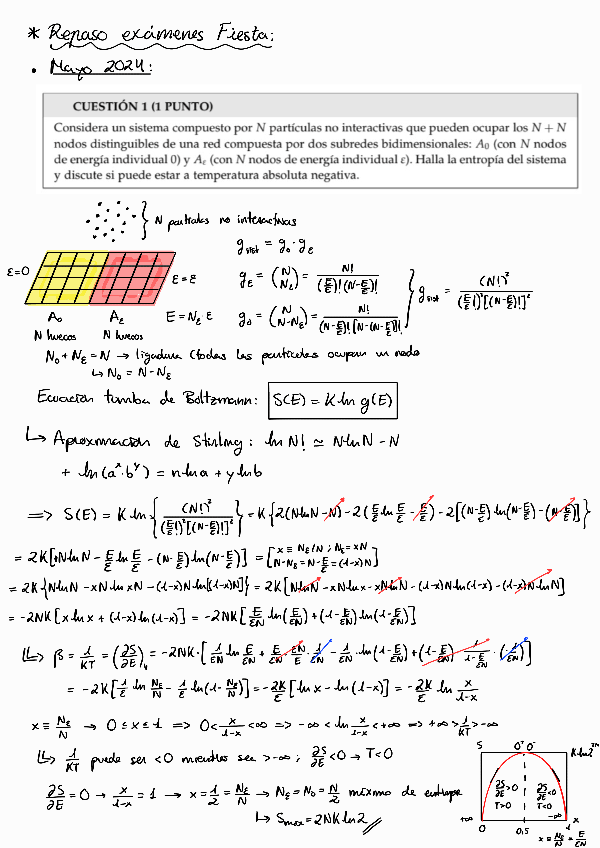 * Repaso exámenes Fiesta:
• Mayo 2024:
CUESTIÓN 1 (1 PUNTO)
Considera un sistema compuesto por N partículas no interactivas que pueden ocupar los N + N
nodos distinguibles de una red compuesta por dos subredes bidimensionales: A₀ (con N nodos
de energía individual 0) y Aε (con N nodos de energía individual ε). Halla la entropía del sistema
y discute si puede estar a temperatura absoluta negativa.
} N partículas no interactivas
ε=0
ε=ε
A₀ Aε
N huecos N huecos
E = Nε·ε
g_dist = g₀·gε
gε = (N Nε) = N! / (E/ε)!(N-E/ε)!
g₀ = (N N-Nε) = N! / (N-E/ε)![N-(N-E/ε)]!
g_dist = (N!)² / (E/ε!)²[(N-E/ε)!]²
N₀ + Nε = N → ligadura (todas las partículas ocupan un nodo
↳ N₀ = N - Nε
Ecuación tumba de Boltzmann: S(E) = K ln g(E)
↳ Aproximación de Stirling: ln N! ≃ N ln N - N
+ ln(aˣ·bʸ) = x ln a + y ln b
⟹ S(E) = K ln { (N!)² / (E/ε!)²[(N-E/ε)!]² } = K { 2(N ln N - N) - 2(E/ε ln E/ε - E/ε) - 2[(N-E/ε) ln(N-E/ε) - (N-E/ε)] }
= 2K[N ln N - E/ε ln E/ε - (N-E/ε) ln(N-E/ε)] = [x ≡ Nε/N ; Nε = xN N-Nε = N-E/ε = (1-x)N]
= 2K{N ln N - xN ln xN - (1-x)N ln[(1-x)N]} = 2K[N ln N - xN ln x - xN ln N - (1-x)N ln(1-x) - (1-x)N ln N]
= -2NK[x ln x + (1-x) ln(1-x)] = -2NK[E/εN ln(E/εN) + (1-E/εN) ln(1-E/εN)]
↳ β = 1/KT = (∂S/∂E) = -2NK·[1/εN ln E/εN + E/εN · εN/E · 1/εN - 1/εN ln(1-E/εN) + (1-E/εN) · 1/(1-E/εN) · (-1/εN)]
= -2K[1/ε ln Nε/N - 1/ε ln(1-Nε/N)] = -2K/ε [ln x - ln(1-x)] = -2K/ε ln x/(1-x)
x ≡ Nε/N → 0 ≤ x ≤ 1 ⟹ 0 < x/(1-x) < ∞ ⟹ -∞ < ln x/(1-x) < +∞ ⟹ +∞ > 1/KT > -∞
↳ 1/KT puede ser <0 mientras sea >-∞ ; ∂S/∂E < 0 → T<0
∂S/∂E = 0 → x/(1-x) = 1 → x = 1/2 = Nε/N → Nε = N₀ = N/2 máximo de entropía
↳ Smax = 2NK ln 2
S
0⁺ 0⁻
∂S/∂E > 0
T>0
∂S/∂E < 0
T<0
+∞
-∞
0 0,5 1 x
x ≡ Nε/N = E/εN